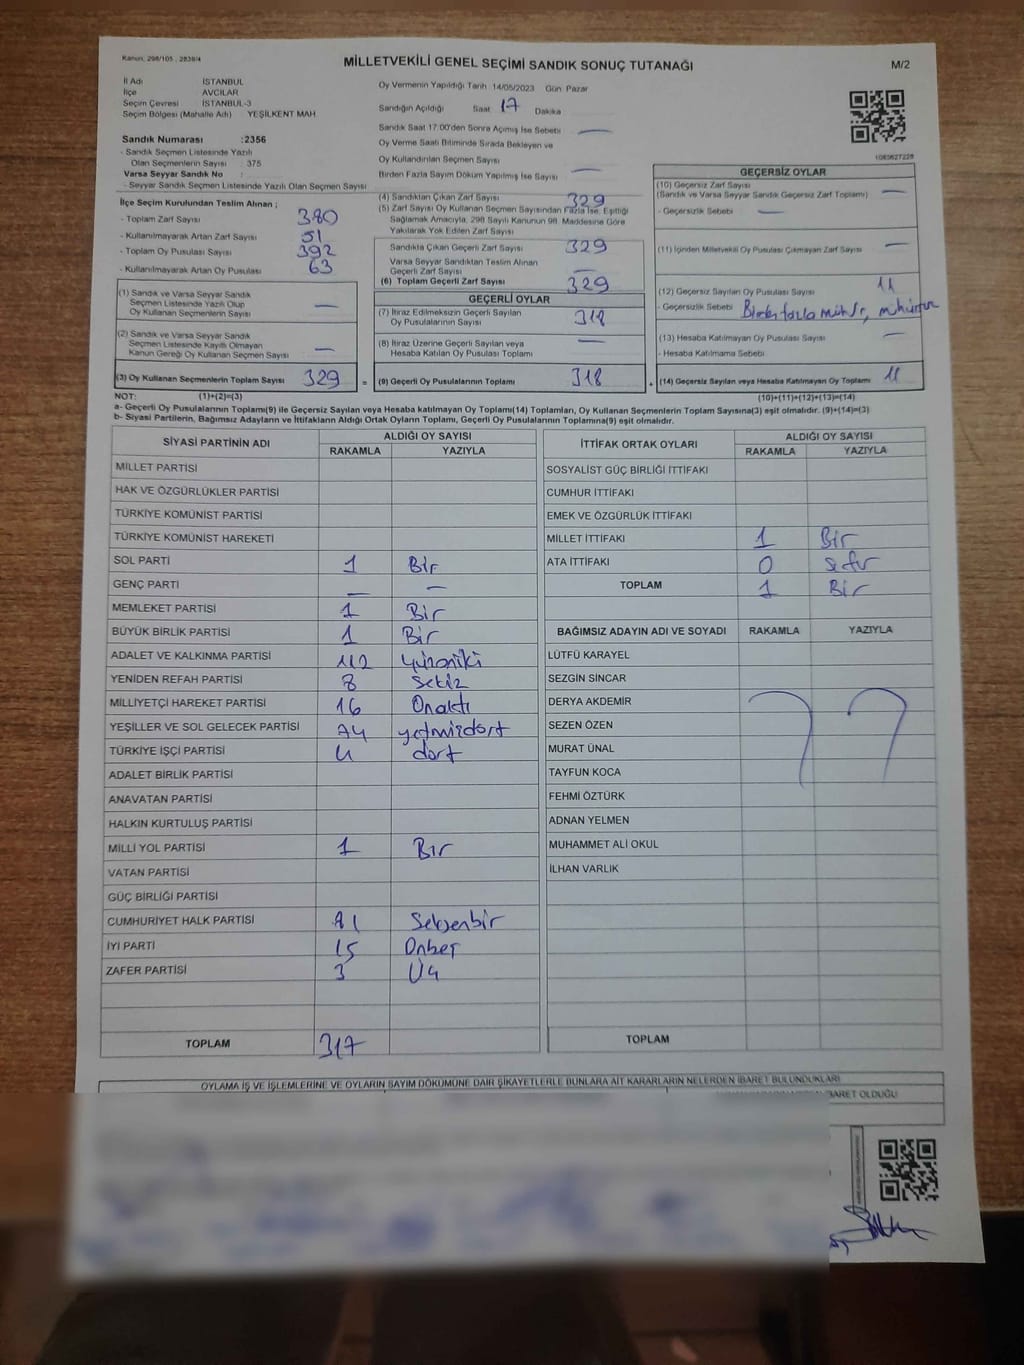 Kanun: 298/105 , 2839/4
MİLLETVEKİLİ GENEL SEÇİMİ SANDIK SONUÇ TUTANAĞI
M/2
İl Adı İSTANBUL
İlçe AVCILAR
Seçim Çevresi İSTANBUL-3
Seçim Bölgesi (Mahalle Adı) YEŞİLKENT MAH
Sandık Numarası :2356
- Sandık Seçmen Listesinde Yazılı
Olan Seçmenlerin Sayısı : 375
Varsa Seyyar Sandık No :
- Seyyar Sandık Seçmen Listesinde Yazılı Olan Seçmen Sayısı
Oy Vermenin Yapıldığı Tarih 14/05/2023 Gün Pazar
Sandığın Açıldığı Saat 17 Dakika
Sandık Saat 17:00'den Sonra Açılmış İse Sebebi —
Oy Verme Saati Bitiminde Sırada Bekleyen ve
Oy Kullandırılan Seçmen Sayısı
Birden Fazla Sayım Döküm Yapılmış İse Sayısı —
1083627228
İlçe Seçim Kurulundan Teslim Alınan ;
- Toplam Zarf Sayısı 380
- Kullanılmayarak Artan Zarf Sayısı 51
- Toplam Oy Pusulası Sayısı 392
- Kullanılmayarak Artan Oy Pusulası 63
(1) Sandık ve Varsa Seyyar Sandık
Seçmen Listesinde Yazılı Olup
Oy Kullanan Seçmenlerin Sayısı —
(2) Sandık ve Varsa Seyyar Sandık
Seçmen Listesinde Kayıtlı Olmayan
Kanun Gereği Oy Kullanan Seçmen Sayısı —
(3) Oy Kullanan Seçmenlerin Toplam Sayısı 329 =
(4) Sandıktan Çıkan Zarf Sayısı 329
(5) Zarf Sayısı Oy Kullanan Seçmen Sayısından Fazla İse, Eşitliği
Sağlamak Amacıyla, 298 Sayılı Kanunun 98. Maddesine Göre
Yakılarak Yok Edilen Zarf Sayısı
Sandıkta Çıkan Geçerli Zarf Sayısı 329
Varsa Seyyar Sandıktan Teslim Alınan
Geçerli Zarf Sayısı —
(6) Toplam Geçerli Zarf Sayısı 329
GEÇERLİ OYLAR
(7) İtiraz Edilmeksizin Geçerli Sayılan
Oy Pusulalarının Sayısı 318
(8) İtiraz Üzerine Geçerli Sayılan veya
Hesaba Katılan Oy Pusulası Toplamı —
(9) Geçerli Oy Pusulalarının Toplamı 318 +
GEÇERSİZ OYLAR
(10) Geçersiz Zarf Sayısı
(Sandık ve Varsa Seyyar Sandık Geçersiz Zarf Toplamı) —
- Geçersizlik Sebebi —
(11) İçinden Milletvekili Oy Pusulası Çıkmayan Zarf Sayısı —
(12) Geçersiz Sayılan Oy Pusulası Sayısı 11
- Geçersizlik Sebebi Birden fazla mühür,
(13) Hesaba Katılmayan Oy Pusulası Sayısı —
- Hesaba Katılmama Sebebi
(14) Geçersiz Sayılan veya Hesaba Katılmayan Oy Toplamı 11
NOT: (1)+(2)=(3) (10)+(11)+(12)+(13)=(14)
a- Geçerli Oy Pusulalarının Toplamı(9) ile Geçersiz Sayılan veya Hesaba katılmayan Oy Toplamı(14) Toplamları, Oy Kullanan Seçmenlerin Toplam Sayısına(3) eşit olmalıdır. (9)+(14)=(3)
b- Siyasi Partilerin, Bağımsız Adayların ve İttifakların Aldığı Ortak Oyların Toplamı, Geçerli Oy Pusulalarının Toplamına(9) eşit olmalıdır.
SİYASİ PARTİNİN ADI ALDIĞI OY SAYISI
RAKAMLA YAZIYLA
MİLLET PARTİSİ
HAK VE ÖZGÜRLÜKLER PARTİSİ
TÜRKİYE KOMÜNİST PARTİSİ
TÜRKİYE KOMÜNİST HAREKETİ
SOL PARTİ 1 Bir
GENÇ PARTİ — —
MEMLEKET PARTİSİ 1 Bir
BÜYÜK BİRLİK PARTİSİ 1 Bir
ADALET VE KALKINMA PARTİSİ 112 yüzoniki
YENİDEN REFAH PARTİSİ 8 Sekiz
MİLLİYETÇİ HAREKET PARTİSİ 16 Onaltı
YEŞİLLER VE SOL GELECEK PARTİSİ 74 yetmişdört
TÜRKİYE İŞÇİ PARTİSİ 4 dört
ADALET BİRLİK PARTİSİ
ANAVATAN PARTİSİ
HALKIN KURTULUŞ PARTİSİ
MİLLİ YOL PARTİSİ 1 Bir
VATAN PARTİSİ
GÜÇ BİRLİĞİ PARTİSİ
CUMHURİYET HALK PARTİSİ 81 Seksenbir
İYİ PARTİ 15 Onbeş
ZAFER PARTİSİ 3 Üç
TOPLAM 317
İTTİFAK ORTAK OYLARI ALDIĞI OY SAYISI
RAKAMLA YAZIYLA
SOSYALİST GÜÇ BİRLİĞİ İTTİFAKI
CUMHUR İTTİFAKI
EMEK VE ÖZGÜRLÜK İTTİFAKI
MİLLET İTTİFAKI 1 Bir
ATA İTTİFAKI 0 sıfır
TOPLAM 1 Bir
BAĞIMSIZ ADAYIN ADI VE SOYADI RAKAMLA YAZIYLA
LÜTFÜ KARAYEL
SEZGİN SİNCAR
DERYA AKDEMİR
SEZEN ÖZEN
MURAT ÜNAL
TAYFUN KOCA
FEHMİ ÖZTÜRK
ADNAN YELMEN
MUHAMMET ALİ OKUL
İLHAN VARLIK
TOPLAM
OYLAMA İŞ VE İŞLEMLERİNE VE OYLARIN SAYIM DÖKÜMÜNE DAİR ŞİKAYETLERLE BUNLARA AİT KARARLARIN NELERDEN İBARET BULUNDUKLARI
İBARET OLDUĞU